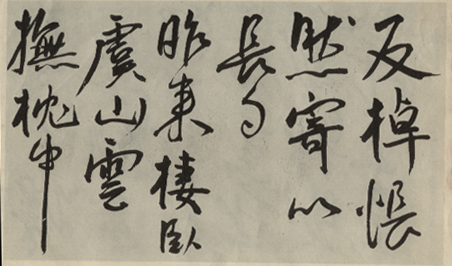 反棹悵
然寄以
長句
昨來棲臥
虞山雲
撫枕中